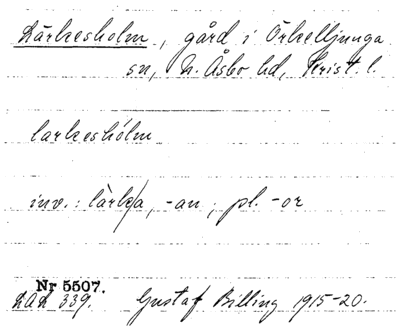 Lärkesholm, gård i Örkelljunga
sn, N. Åsbo hd, Krist. l.
larkeshólm
inv.: làrk/a, -an; pl. -or
Nr 5507.
LAL 339. Gustaf Billing 1915-20.